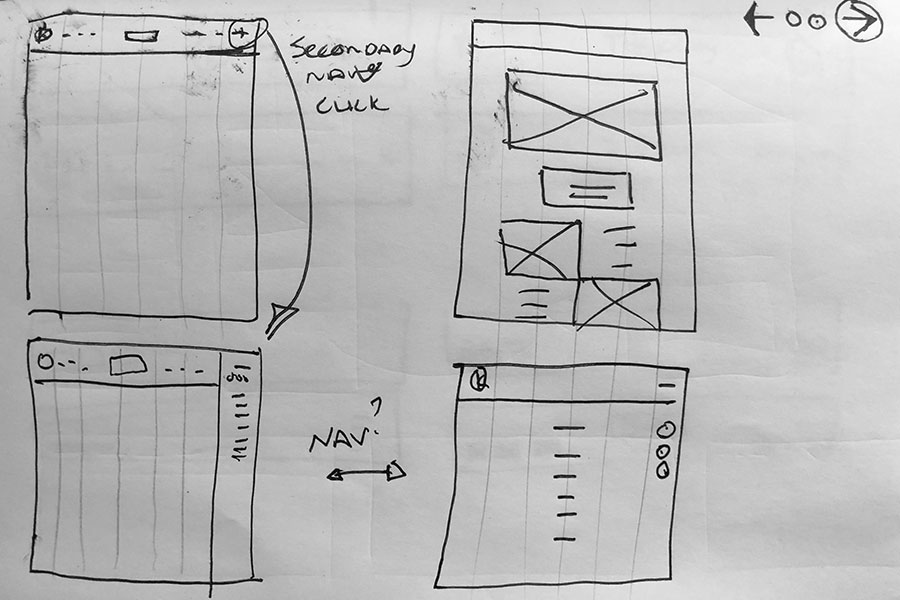 SECONDARY
NAV
CLICK
NAV?